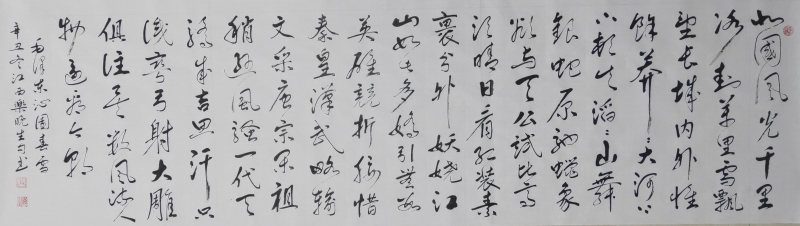 北国风光千里
冰封万里雪飘
望长城内外惟
馀莽〻大河上
下顿失滔〻山舞
银蛇原驰蜡象
欲与天公试比高
须晴日看红装素
裹分外妖娆江
山如此多娇引无数
英雄竞折腰惜
秦皇汉武略输
文采唐宗宋祖
稍逊风骚一代天
骄成吉思汗只
识弯弓射大雕
俱往矣数风流人
物还看今朝
毛泽东沁园春雪
辛丑冬江西乐晓生书